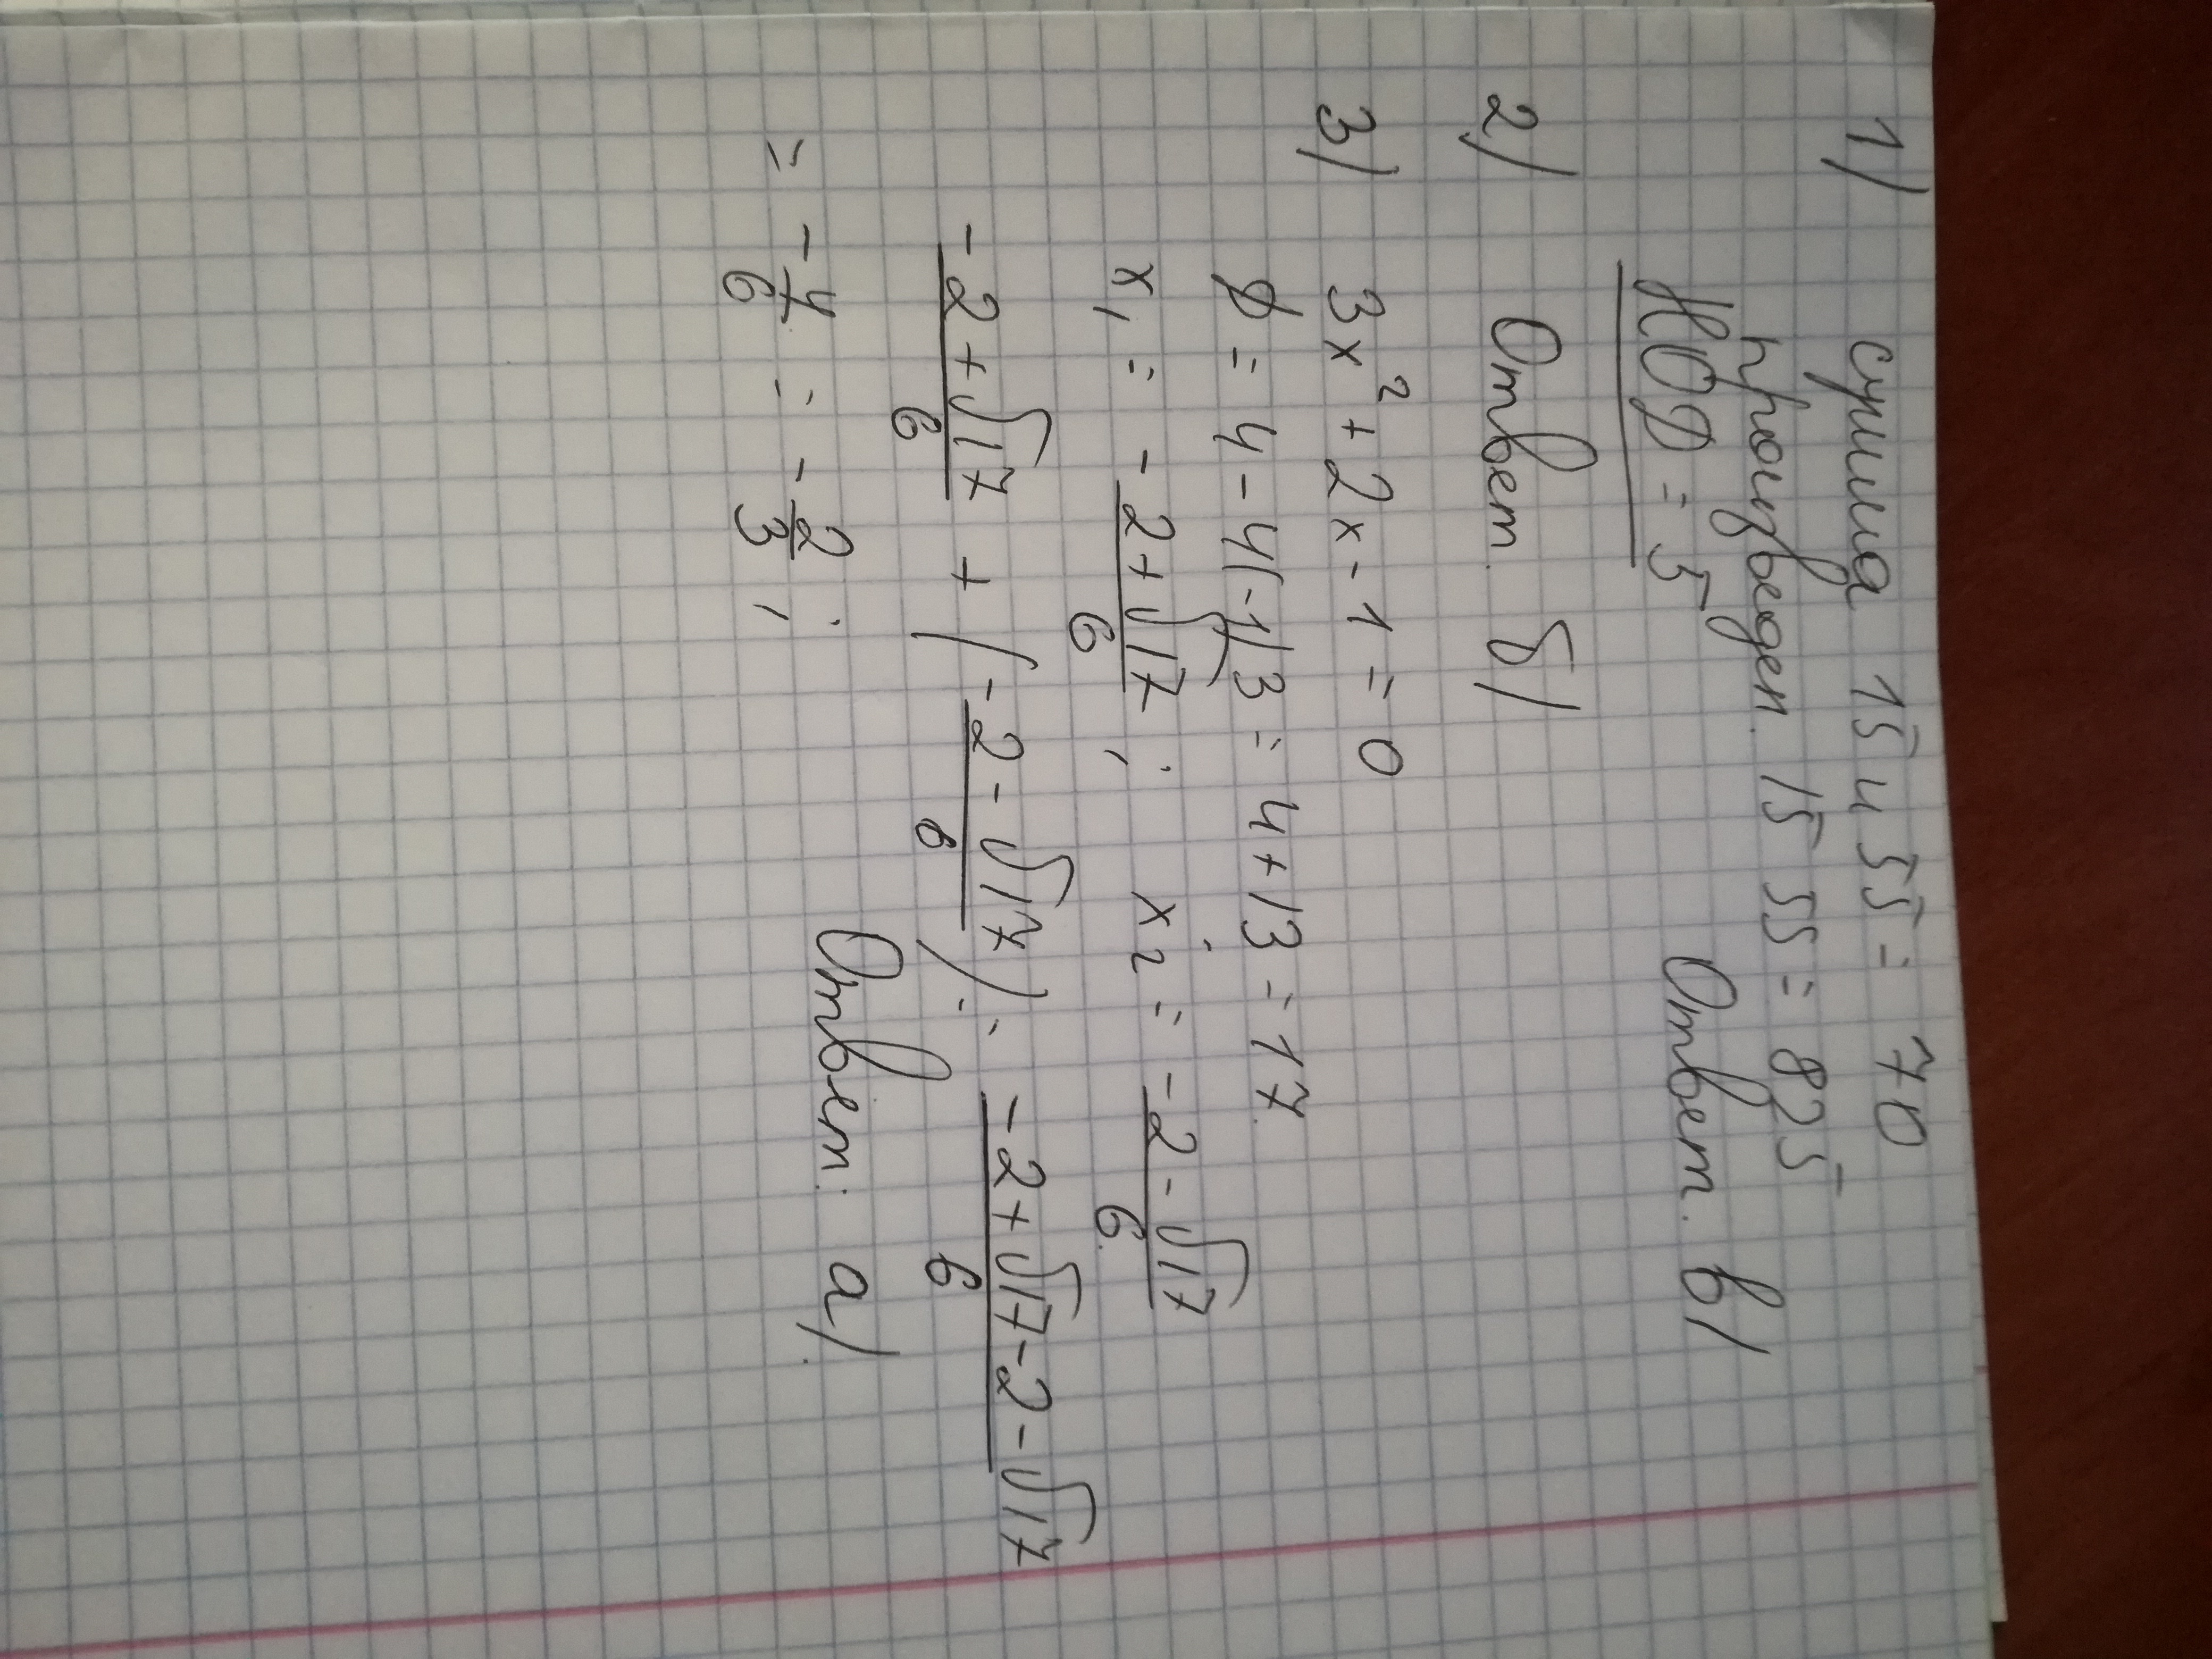 1) сумма 15 и 55 = 70
произведен. 15 55 = 825
НОД = 5 Ответ. в)
2) Ответ. б)
3) 3x² + 2x - 1 = 0
D = 4 - 4(-1)3 = 4 + 13 = 17
x₁ = \frac{-2+√17}{6}; x₂ = \frac{-2-√17}{6}
\frac{-2+√17}{6} + (\frac{-2-√17}{6}) = \frac{-2+√17-2-√17}{6}
= -\frac{4}{6} = -\frac{2}{3}; Ответ: а).